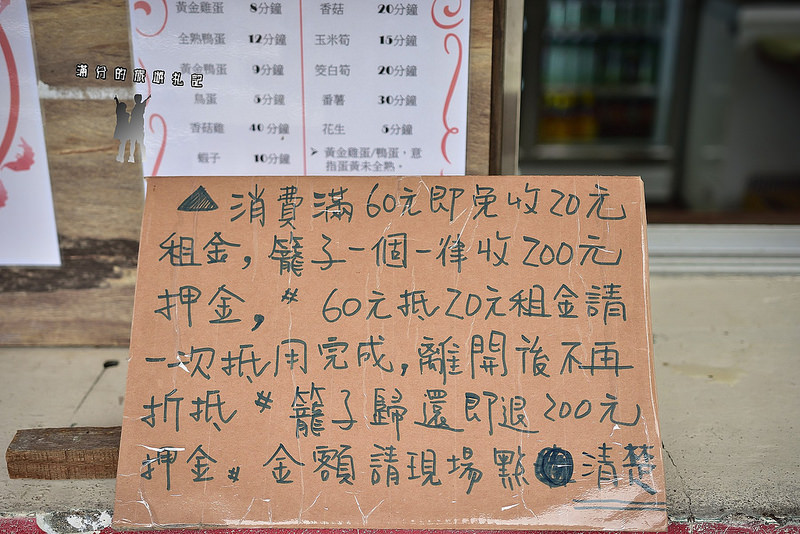 黃金雞蛋 8分鐘 香菇 20分鐘
全熟鴨蛋 12分鐘 玉米筍 15分鐘
黃金鴨蛋 9分鐘 茭白筍 20分鐘
鳥蛋 5分鐘 番薯 30分鐘
香菇雞 40分鐘 花生 5分鐘
蝦子 10分鐘 ➤ 黃金雞蛋/鴨蛋，意
指蛋黃未全熟。
滿分的旅遊札記
▲消費滿60元即免收20元
租金,籠子一個一律收200元
押金,# 60元抵20元租金請
一次抵用完成,離開後不再
折抵 # 籠子歸還即退200元
押金。金額請現場點清楚